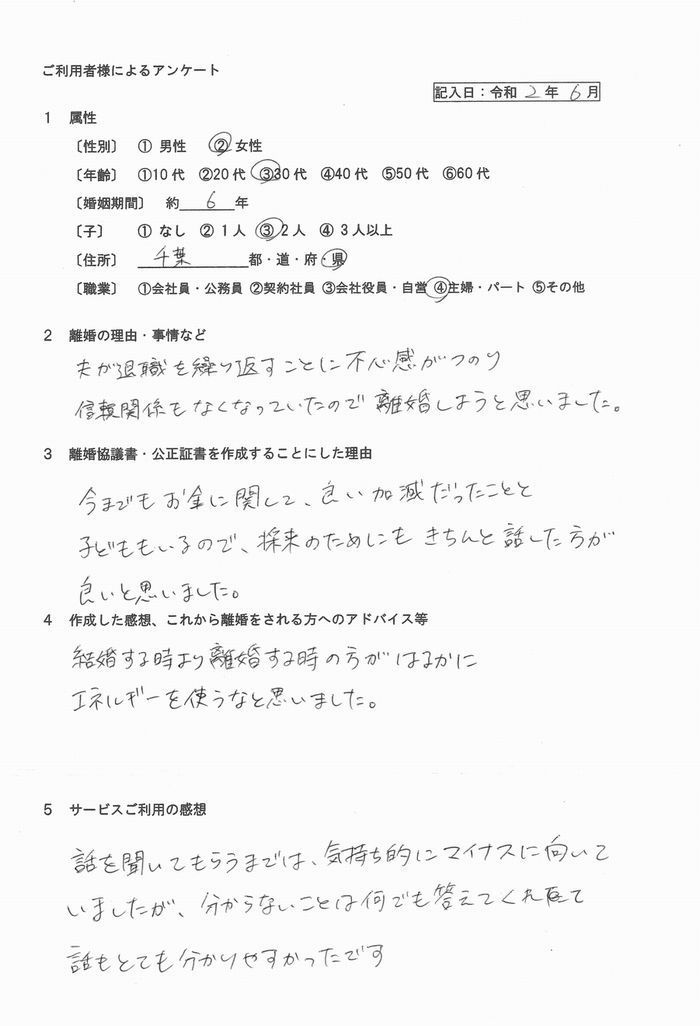 ご利用者様によるアンケート
記入日：令和 2 年 6 月
1 属性
〔性別〕 ① 男性 ② 女性
〔年齢〕 ①10代 ②20代 ③30代 ④40代 ⑤50代 ⑥60代
〔婚姻期間〕 約 6 年
〔子〕 ① なし ② 1人 ③ 2人 ④ 3人以上
〔住所〕 千葉 都・道・府・県
〔職業〕 ①会社員・公務員 ②契約社員 ③会社役員・自営 ④主婦・パート ⑤その他
2 離婚の理由・事情など
夫が退職を繰り返すことに不信感がつのり
信頼関係もなくなっていたので離婚しようと思いました。
3 離婚協議書・公正証書を作成することにした理由
今までもお金に関して、良い加減だったことと
子どももいるので、将来のためにもきちんと話した方が
良いと思いました。
4 作成した感想、これから離婚をされる方へのアドバイス等
結婚する時より離婚する時の方がはるかに
エネルギーを使うなと思いました。
5 サービスご利用の感想
話を聞いてもらうまでは、気持ち的にマイナスに向いて
いましたが、分からないことは何でも答えてくれて
話もとても分かりやすかったです